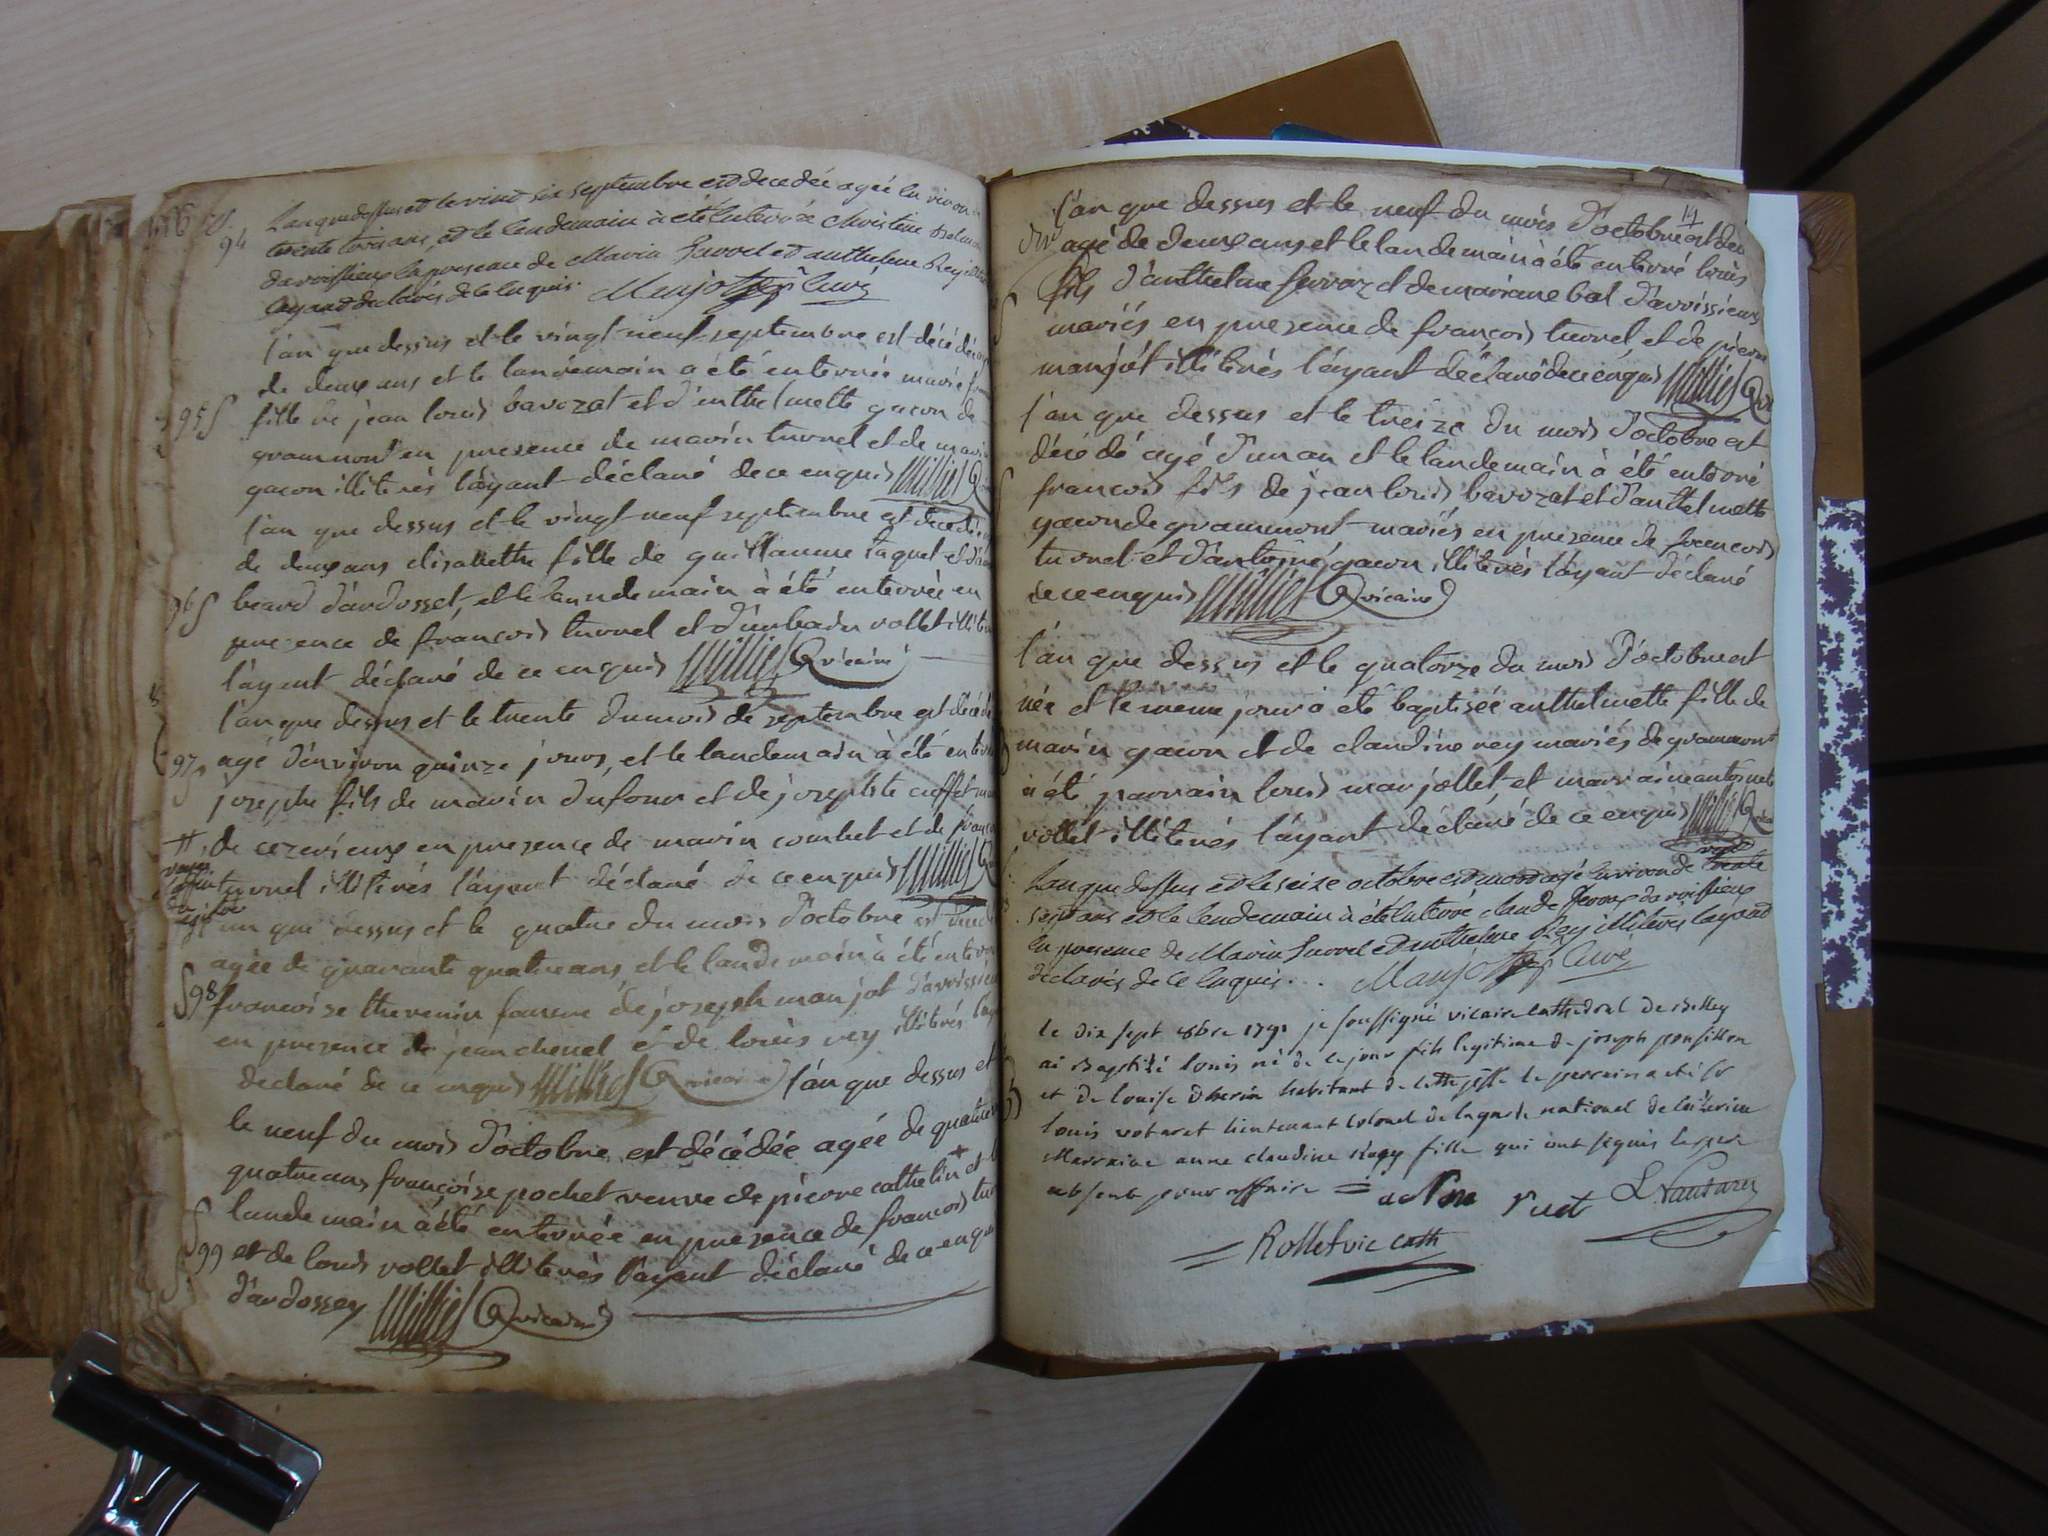 94
L'an que dessus et le vind six septembre est decedée agée en viron
trente trois ans, et le lendemain à été enterrée Christine
da voissieux en presence de Marin Turrel et d'anthelme Rey
layand declarés de ce enquis. Manjot curé
l'an que dessus et le vingt neuf septembre est décédée
de deux ans et le landemain a été enterrée marie
95 fille de jean louis bavozat et d'enthelmette gacon de
grammont en presence de marin turrel et de
gacon illiterés l'ayant déclaré de ce enquis Milliet
l'an que dessus et le vingt neuf septembre est decedée
de deux ans elisabethe fille de guillaume taquet et
96 beard d'ardosset, et le lendemain à été enterrée en
presence de francois turrel et d'urbain vollet
l'ayant déclaré de ce enquis Milliet vicaire
l'an que dessus et le trente du mois de septembre est décédé
97 agé d'environ quinze jours, et le landemain à été
josephe fils de marin dufour et de josephte cuffet
de cezerieux en presence de marin combet et de
turrel illiterés l'ayant déclaré de ce enquis Milliet
l'an que dessus et le quatre du mois d'octobre est
agée de quarante quatre ans, et le landemain à été
98 francoise thevenin femme de joseph manjot d'avoissieu
en presence de jean chenel é de louis rey illiterés
declaré de ce enquis Milliet vicaire l'an que dessus et
le neuf du mois d'octobre est décédée agée de
quatre ans francoise pochet veuve de pierre cathelin + et
landemain à été enterrée en presence de francois
99 et de louis vollet illiterés l'ayant déclaré de ce enquis
d'ardossey Milliet vicaire
l'an que dessus et le neuf du mois d'octobre est
agé de deux ans et le landemain à été enterré louis
fils d'anthelme ferroz et de mariane bal d'avoissieux
mariés en presence de francois turrel et de pierre
manjot illiterés l'ayant déclaré de ce enquis Milliet
l'an que dessus et le treize du mois d'octobre est
décédé agé d'un an et le landemain à été enterré
francois fils de jean louis bavozat et d'anthelmette
gacon de grammont mariés en presence de francois
turrel et d'antoine gacon illiterés l'ayant déclaré
de ce enquis Milliet vicaire
l'an que dessus et le quatorze du mois d'octobre est
née et le même jour à été baptisée anthelmette fille de
marin gacon et de claudine rey mariés de grammont
à été parrain louis marjollet et marraine antoinette
vollet illiterés l'ayant declaré de ce enquis Milliet
L'an que dessus et le seize octobre est mord agé en viron de trente
sept ans et le lendemain à été enterré claude ferroz da voissieux
en presence de Marin Turrel et anthelme Rey illiterés layand
declarés de ce enquis... Manjot curé
le dix sept 8bre 1791 je soussigné vicaire cathedral de Belley
ai Baptisé louis né de ce jour fils legitime de joseph
et de louise habitant de cette le parrain a été sr
louis votaret lieutenant colonel de la garde national de
Marraine anne claudine fille qui ont signés le père
absent pour affaire =
= Rollet vic cath